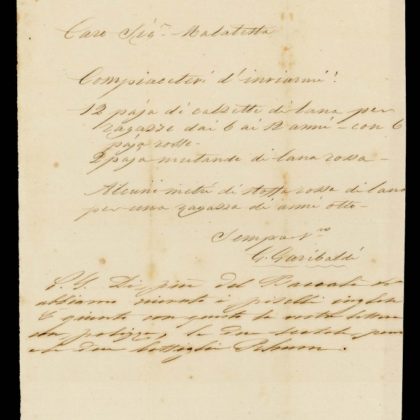 Caro Sigr. Malatesta
Compiacetevi d'inviarmi:
12 paja di calzette di lana per
ragazze dai 6 ai 12 anni - con 6
paja rosse -
2 paja mutande di lana rossa -
Alcuni metri di stoffa rossa di lana
per una ragazza di anni otto -
Sempre Vro
G. Garibaldi
P.S. Di più del
abbiamo i piselli
È giunto con questa la vostra lettera
le due scatole
e le due bottiglie